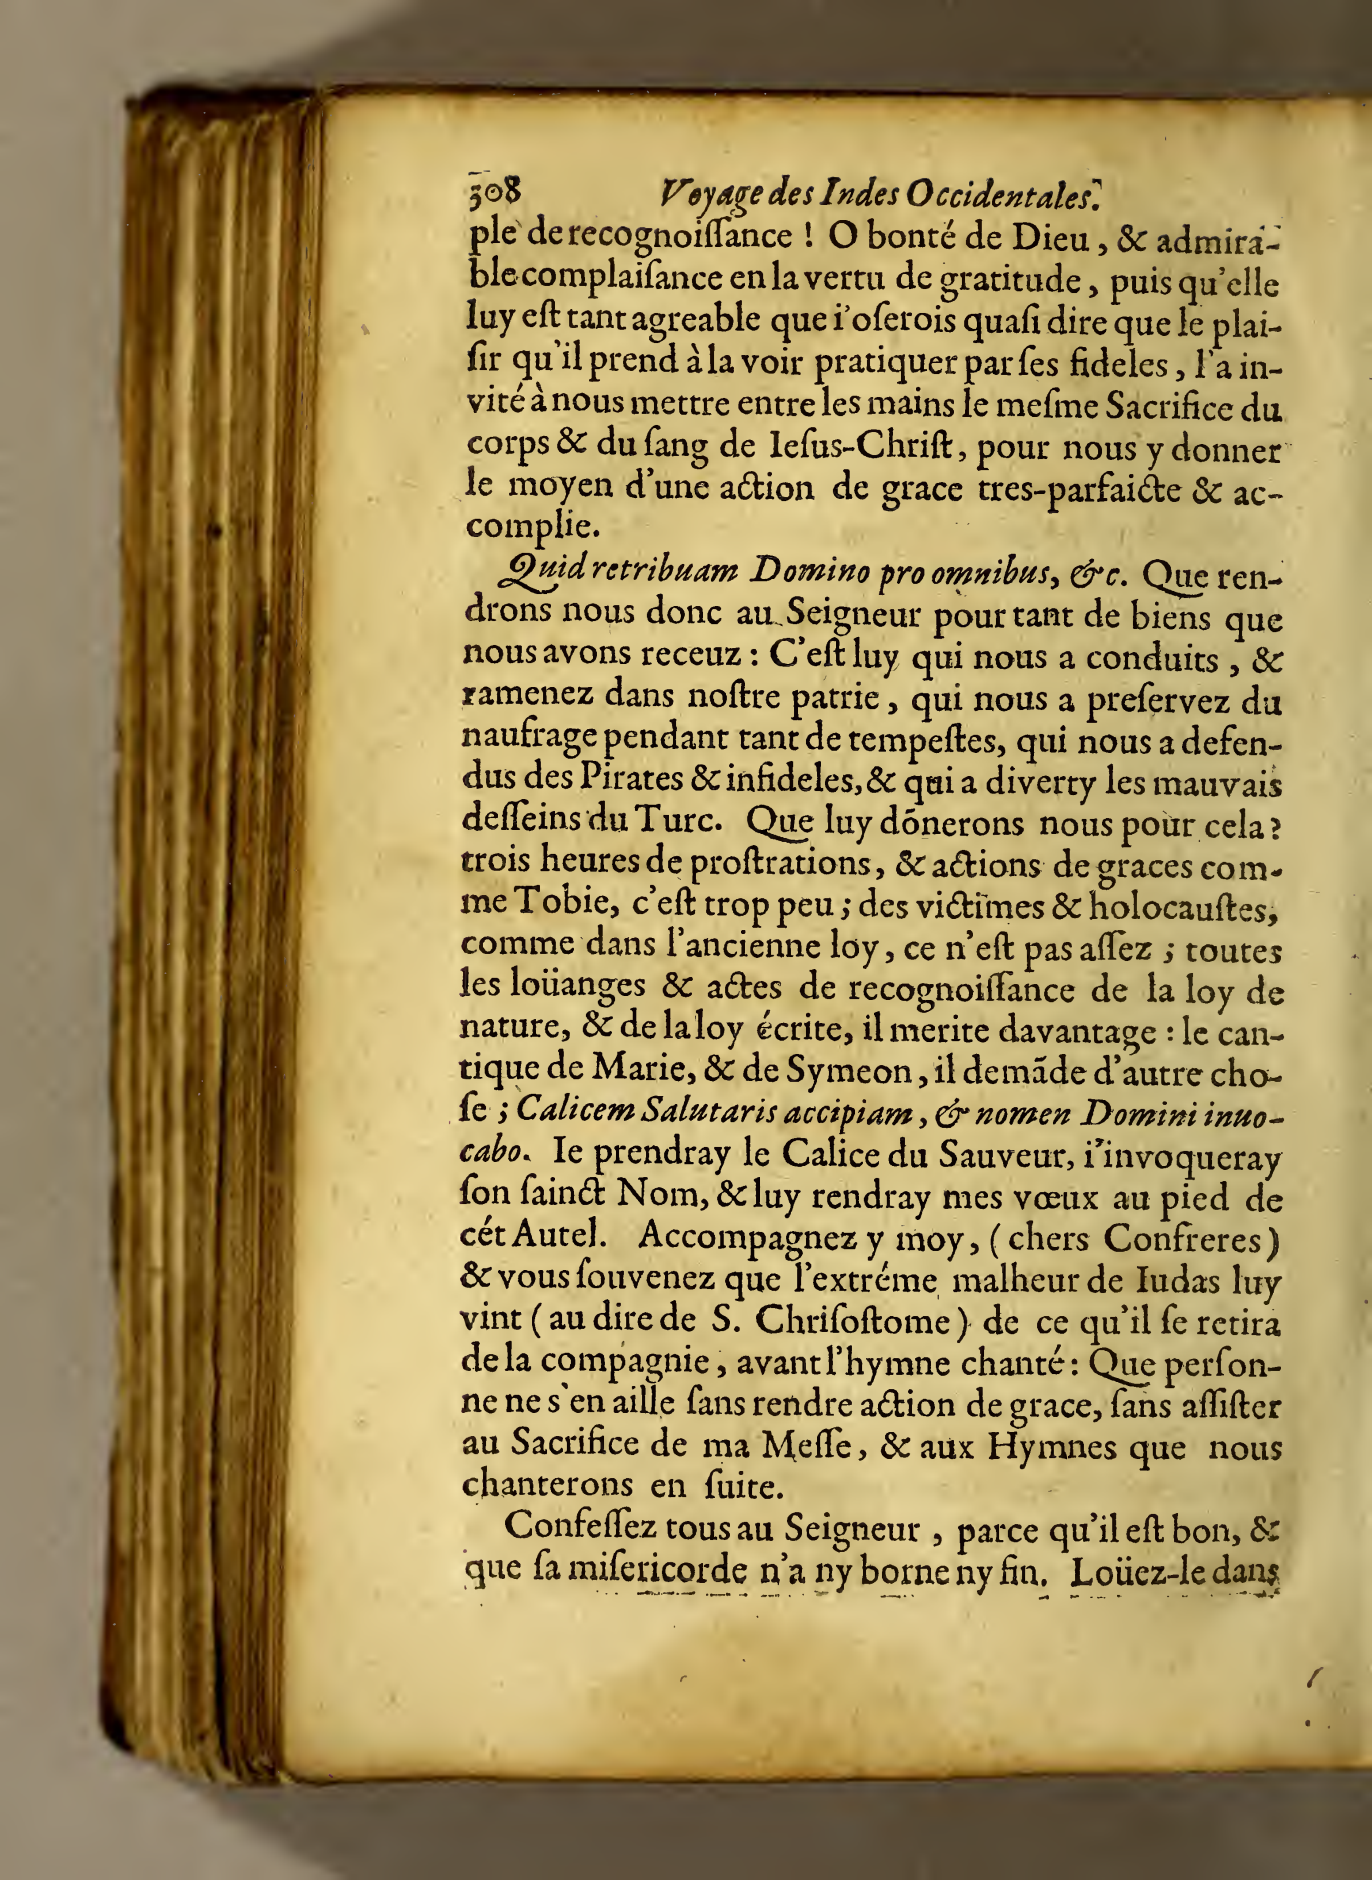 308 Voyage des Indes Occidentales.
ple de recognoiſſance ! O bonté de Dieu, & admira-
ble complaiſance en la vertu de gratitude, puis qu'elle
luy eſt tant agreable que i'oſerois quaſi dire que le plai-
ſir qu'il prend à la voir pratiquer par ſes fideles, l'a in-
vité à nous mettre entre les mains le meſme Sacrifice du
corps & du ſang de Ieſus-Chriſt, pour nous y donner
le moyen d'une action de grace tres-parfaicte & ac-
complie.
Quid retribuam Domino pro omnibus, &c. Que ren-
drons nous donc au Seigneur pour tant de biens que
nous avons receuz : C'eſt luy qui nous a conduits, &
ramenez dans noſtre patrie, qui nous a preſervez du
naufrage pendant tant de tempeſtes, qui nous a defen-
dus des Pirates & infideles, & qui a diverty les mauvais
deſſeins du Turc. Que luy dõnerons nous pour cela ?
trois heures de proſtrations, & actions de graces com-
me Tobie, c'eſt trop peu ; des victimes & holocauſtes,
comme dans l'ancienne loy, ce n'eſt pas aſſez ; toutes
les loüanges & actes de recognoiſſance de la loy de
nature, & de la loy écrite, il merite davantage : le can-
tique de Marie, & de Symeon, il demãde d'autre cho-
ſe ; Calicem Salutaris accipiam, & nomen Domini inuo-
cabo. Ie prendray le Calice du Sauveur, i'invoqueray
ſon ſainct Nom, & luy rendray mes vœux au pied de
cét Autel. Accompagnez y moy, ( chers Confreres )
& vous ſouvenez que l'extréme malheur de Iudas luy
vint ( au dire de S. Chriſoſtome ) de ce qu'il ſe retira
de la compagnie, avant l'hymne chanté : Que perſon-
ne ne s'en aille ſans rendre action de grace, ſans aſſiſter
au Sacrifice de ma Meſſe, & aux Hymnes que nous
chanterons en ſuite.
Confeſſez tous au Seigneur, parce qu'il eſt bon, &
que ſa miſericorde n'a ny borne ny fin. Loüez-le dans